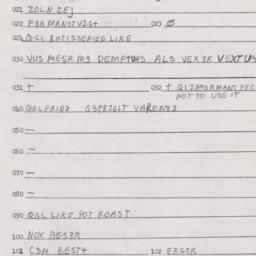 021 ZOLN ZEJ
022 FSH MAN3TV26+ 023 Ø
024 QGL ROTISSERIED LIKE
030 VUS MESR M3 DEMPTUHS ALS VEX 3R VEXTUS
031 + 032 + QIINFORMANT PRE
NOT TO USE IT
040 QGLFRIED G3PRIGLT VAREN83
050 —
060 —
070 —
080 —
090 QGL LIKE POT ROAST
100 NOX BES3R
101 C3M BEST+ 102 ERGER